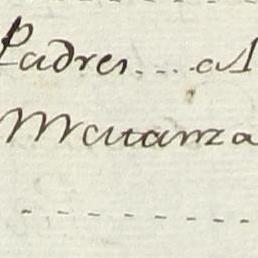 Padres....al
Matanza